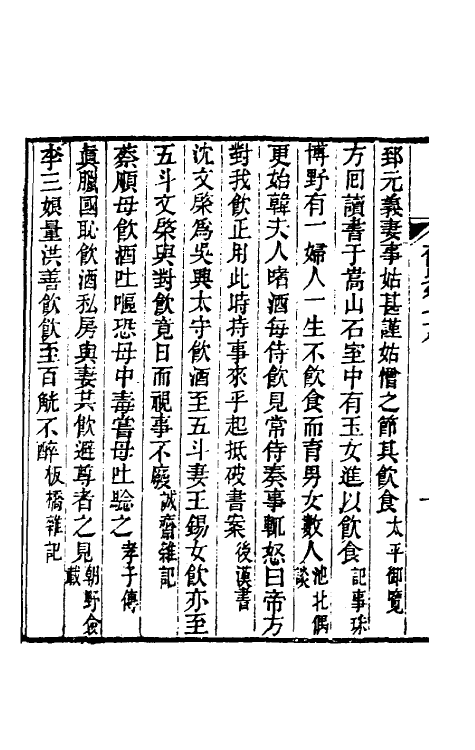 郅元義妻事姑甚謹姑憎之節其飲食太平御覽
方回讀書于嵩山石室中有玉女進以飲食記事珠
博野有一婦人一生不飲食而育男女數人池北偶談
更始韓夫人嗜酒每侍飲見常侍奏事輒怒曰帝方
對我飲正用此時持事來乎起抵破書案後漢書
沈文榮爲吳興太守飲酒至五斗妻王錫女飲亦至
五斗文榮與對飲竟日而視事不廢誠齋雜記
蔡順母飲酒吐嘔恐母中毒嘗母吐驗之孝子傳
眞臘國恥飲酒私房與妻共飲避尊者之見朝野僉載
李三娘量洪善飲飲至百觥不醉板橋雜記